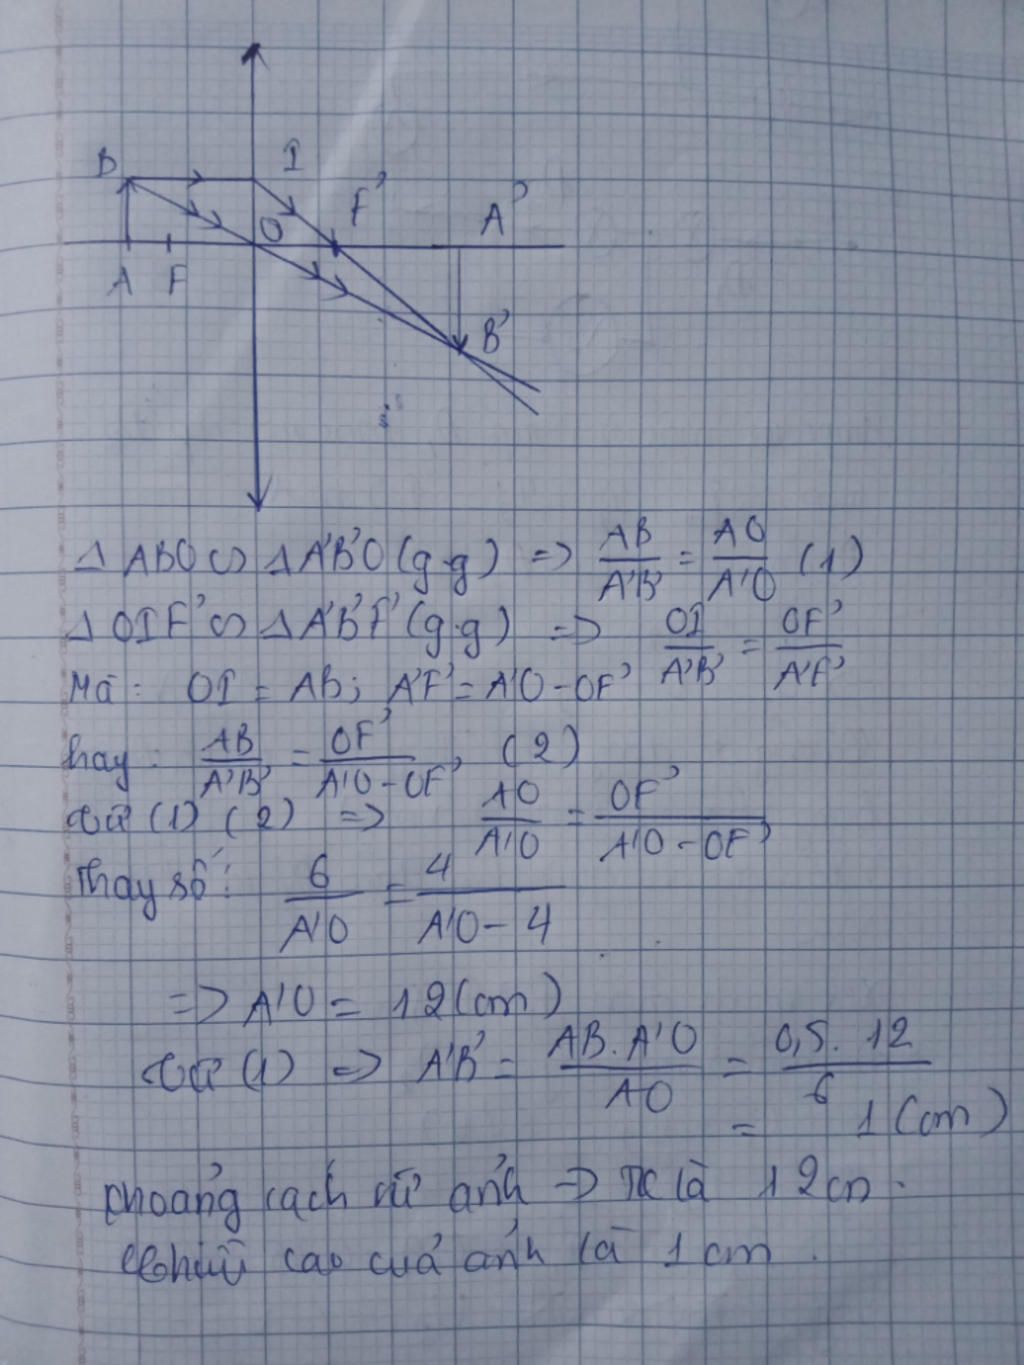 B I F' A'
O
A F
B'
Δ ABO ∽ Δ A'B'O (g.g) => AB/A'B' = AO/A'O (1)
Δ OIF' ∽ Δ A'B'F' (g.g) => OI/A'B' = OF'/A'F'
Mà: OI = AB; A'F' = A'O - OF'
hay: AB/A'B' = OF'/A'O - OF' (2)
Từ (1) (2) => AO/A'O = OF'/A'O - OF'
Thay số: 6/A'O = 4/A'O - 4
=> A'O = 12 (cm)
Từ (1) => A'B' = AB.A'O/AO = 0,5. 12/6
= 1 (cm)
Khoảng cách từ ảnh -> TK là 12cm.
Chiều cao của ảnh là 1 cm.